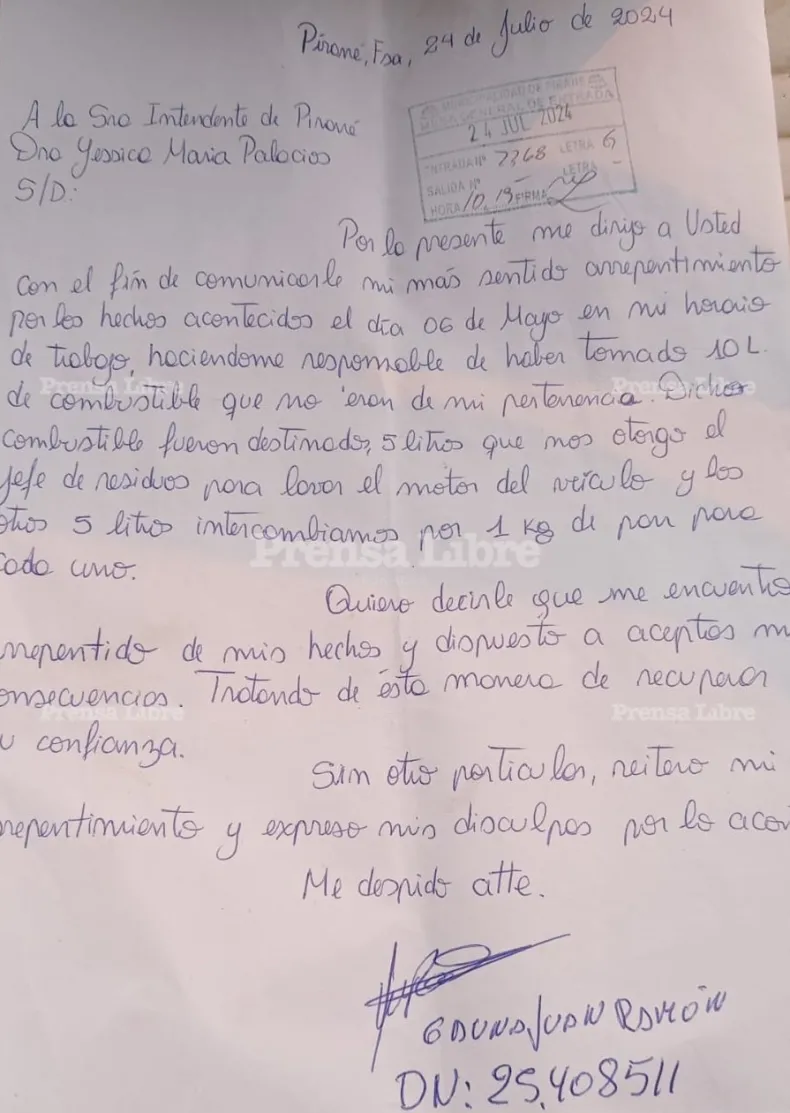 Pirané, Fsa, 24 de Julio de 2024
MUNICIPALIDAD DE PIRANE
MESA GENERAL DE ENTRADA
24 JUL 2024
ENTRADA Nº 7368 LETRA G
SALIDA Nº - LETRA -
HORA 10,13 FIRMA
A la Sra Intendente de Pirané
Dra Yessica Maria Palacios
S/D:
Por la presente me dirijo a Usted
con el fin de comunicarle mi más sentido arrepentimiento
por los hechos acontecidos el día 06 de Mayo en mi horario
de trabajo, haciendome responsable de haber tomado 10 L.
de combustible que no eran de mi pertenencia. Dichos
combustible fueron destinado, 5 litros que nos otorgo el
jefe de residuos para lavar el motor del veículo y los
otros 5 litros intercambiamos por 1 Kg de pan para
cada uno.
Quiero decirle que me encuentro
rrepentido de mis hechos y dispuesto a aceptas mi
onsecuencias. Tratando de ésta manera de recuperar
u confianza.
Sin otro particular, reitero mi
repentimiento y expreso mis disculpas por lo acon
Me despido atte.
GAUNA JUAN RAMÓN
DN: 25.408511
Prensa Libre
Prensa Libre
Prensa Libre
Prensa Libre
Prensa Libre